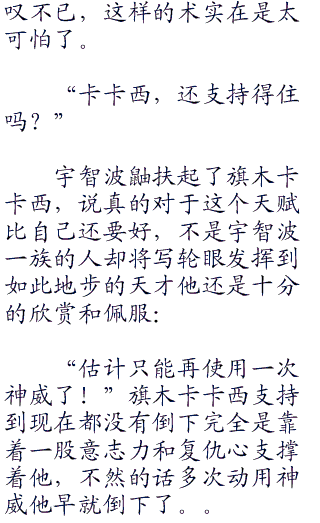 叹不已，这样的术实在是太
可怕了。
“卡卡西，还支持得住
吗？”
宇智波鼬扶起了旗木卡
卡西，说真的对于这个天赋
比自己还要好，不是宇智波
一族的人却将写轮眼发挥到
如此地步的天才他还是十分
的欣赏和佩服：
“估计只能再使用一次
神威了！”旗木卡卡西支持
到现在都没有倒下完全是靠
着一股意志力和复仇心支撑
着他，不然的话多次动用神
威他早就倒下了。。